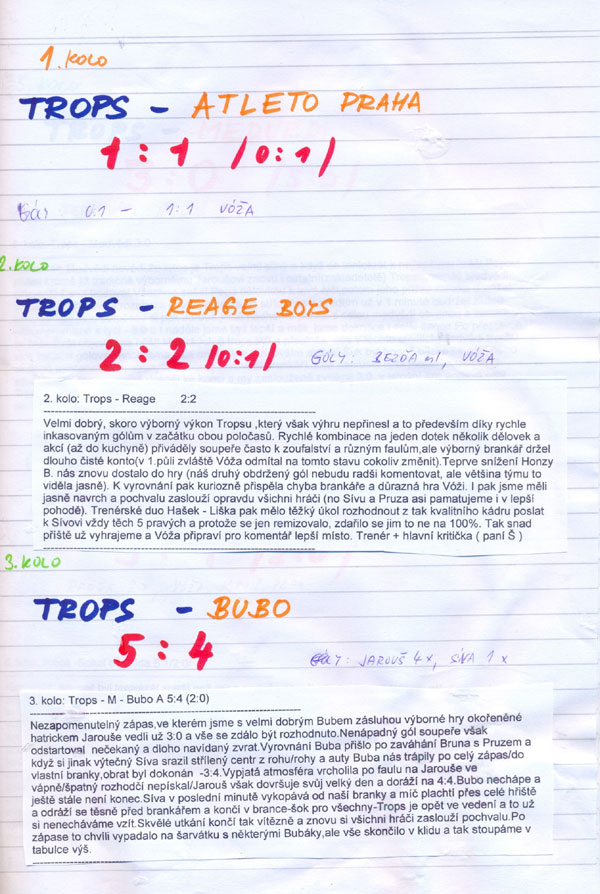 1. KOLO
TROPS - ATLETO PRAHA
1 : 1 /0:1/
GÓLY 0:1 - 1:1 VÓŽA
2. KOLO
TROPS - REAGE BOYS
2 : 2 /0:1/
GÓLY: BEZĎA ml, VÓŽA
2. kolo: Trops - Reage 2:2
Velmi dobrý, skoro výborný výkon Tropsu ,který však výhru nepřinesl a to především díky rychle
inkasovaným gólům v začátku obou poločasů. Rychlé kombinace na jeden dotek několik dělovek a
akcí (až do kuchyně) přiváděly soupeře často k zoufalství a různým faulům,ale výborný brankář držel
dlouho čisté konto(v 1.půli zvláště Vóža odmítal na tomto stavu cokoliv změnit).Teprve snížení Honzy
B. nás znovu dostalo do hry (náš druhý obdržený gól nebudu radši komentovat, ale většina týmu to
viděla jasně). K vyrovnání pak kuriozně přispěla chyba brankáře a důrazná hra Vóži. I pak jsme měli
jasně navrch a pochvalu zaslouží opravdu všichni hráči (no Sívu a Pruza asi pamatujeme i v lepší
pohodě). Trenérské duo Hašek - Liška pak mělo těžký úkol rozhodnout z tak kvalitního kádru poslat
k Sívovi vždy těch 5 pravých a protože se jen remizovalo, zdařilo se jim to ne na 100%. Tak snad
příště už vyhrajeme a Vóža připraví pro komentář lepší místo. Trenér + hlavní kritička ( paní Š )
3. KOLO
TROPS - BUBO
5 : 4
GÓLY: JAROUŠ 4x, SÍVA 1x
3. kolo: Trops - M - Bubo A 5:4 (2:0)
Nezapomenutelný zápas,ve kterém jsme s velmi dobrým Bubem zásluhou výborné hry okořeněné
hatrickem Jarouše vedli už 3:0 a vše se zdálo být rozhodnuto.Nenápadný gól soupeře však
odstartoval nečekaný a dlouho navídaný zvrat.Vyrovnání Buba přišlo po zaváhání Bruna s Pruzem a
když si jinak výtečný Síva srazil střílený centr z rohu/rohy a auty Buba nás trápily po celý zápas/do
vlastní branky,obrat byl dokonán -3:4.Vypjatá atmosféra vrcholila po faulu na Jarouše ve
vápně/špatný rozhodčí nepískal/Jarouš však dovršuje svůj velký den a doráží na 4:4.Bubo nechápe a
ještě stále není konec.Síva v poslední minutě vykopává od naší branky a míč plachtí přes celé hřiště
a odráží se těsně před brankářem a končí v brance-šok pro všechny-Trops je opět ve vedení a to už
si nenecháváme vzít.Skvělé utkání končí tak vítězně a znovu si všichni hráči zaslouží pochvalu.Po
zápase to chvíli vypadalo na šarvátku s některými Bubáky,ale vše skončilo v klidu a tak stoupáme v
tabulce výš.